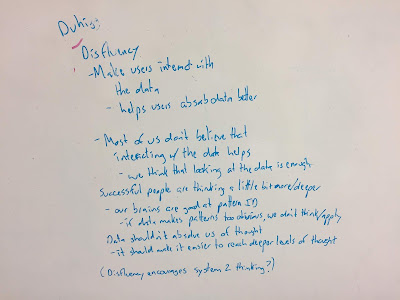 Duhigg
Disfluency
- Make users interact with
the data
- helps users absorb data better
- Most of us don't believe that
interacting w/ the data helps
- we think that looking at the data is enough
Successful people are thinking a little bit more/deeper
- our brains are good at pattern ID
- if data makes patterns too obvious, we don't think/apply
Data shouldn't absolve us of thought
- it should make it easier to reach deeper levels of thought
(Disfluency encourages system 2 thinking?)